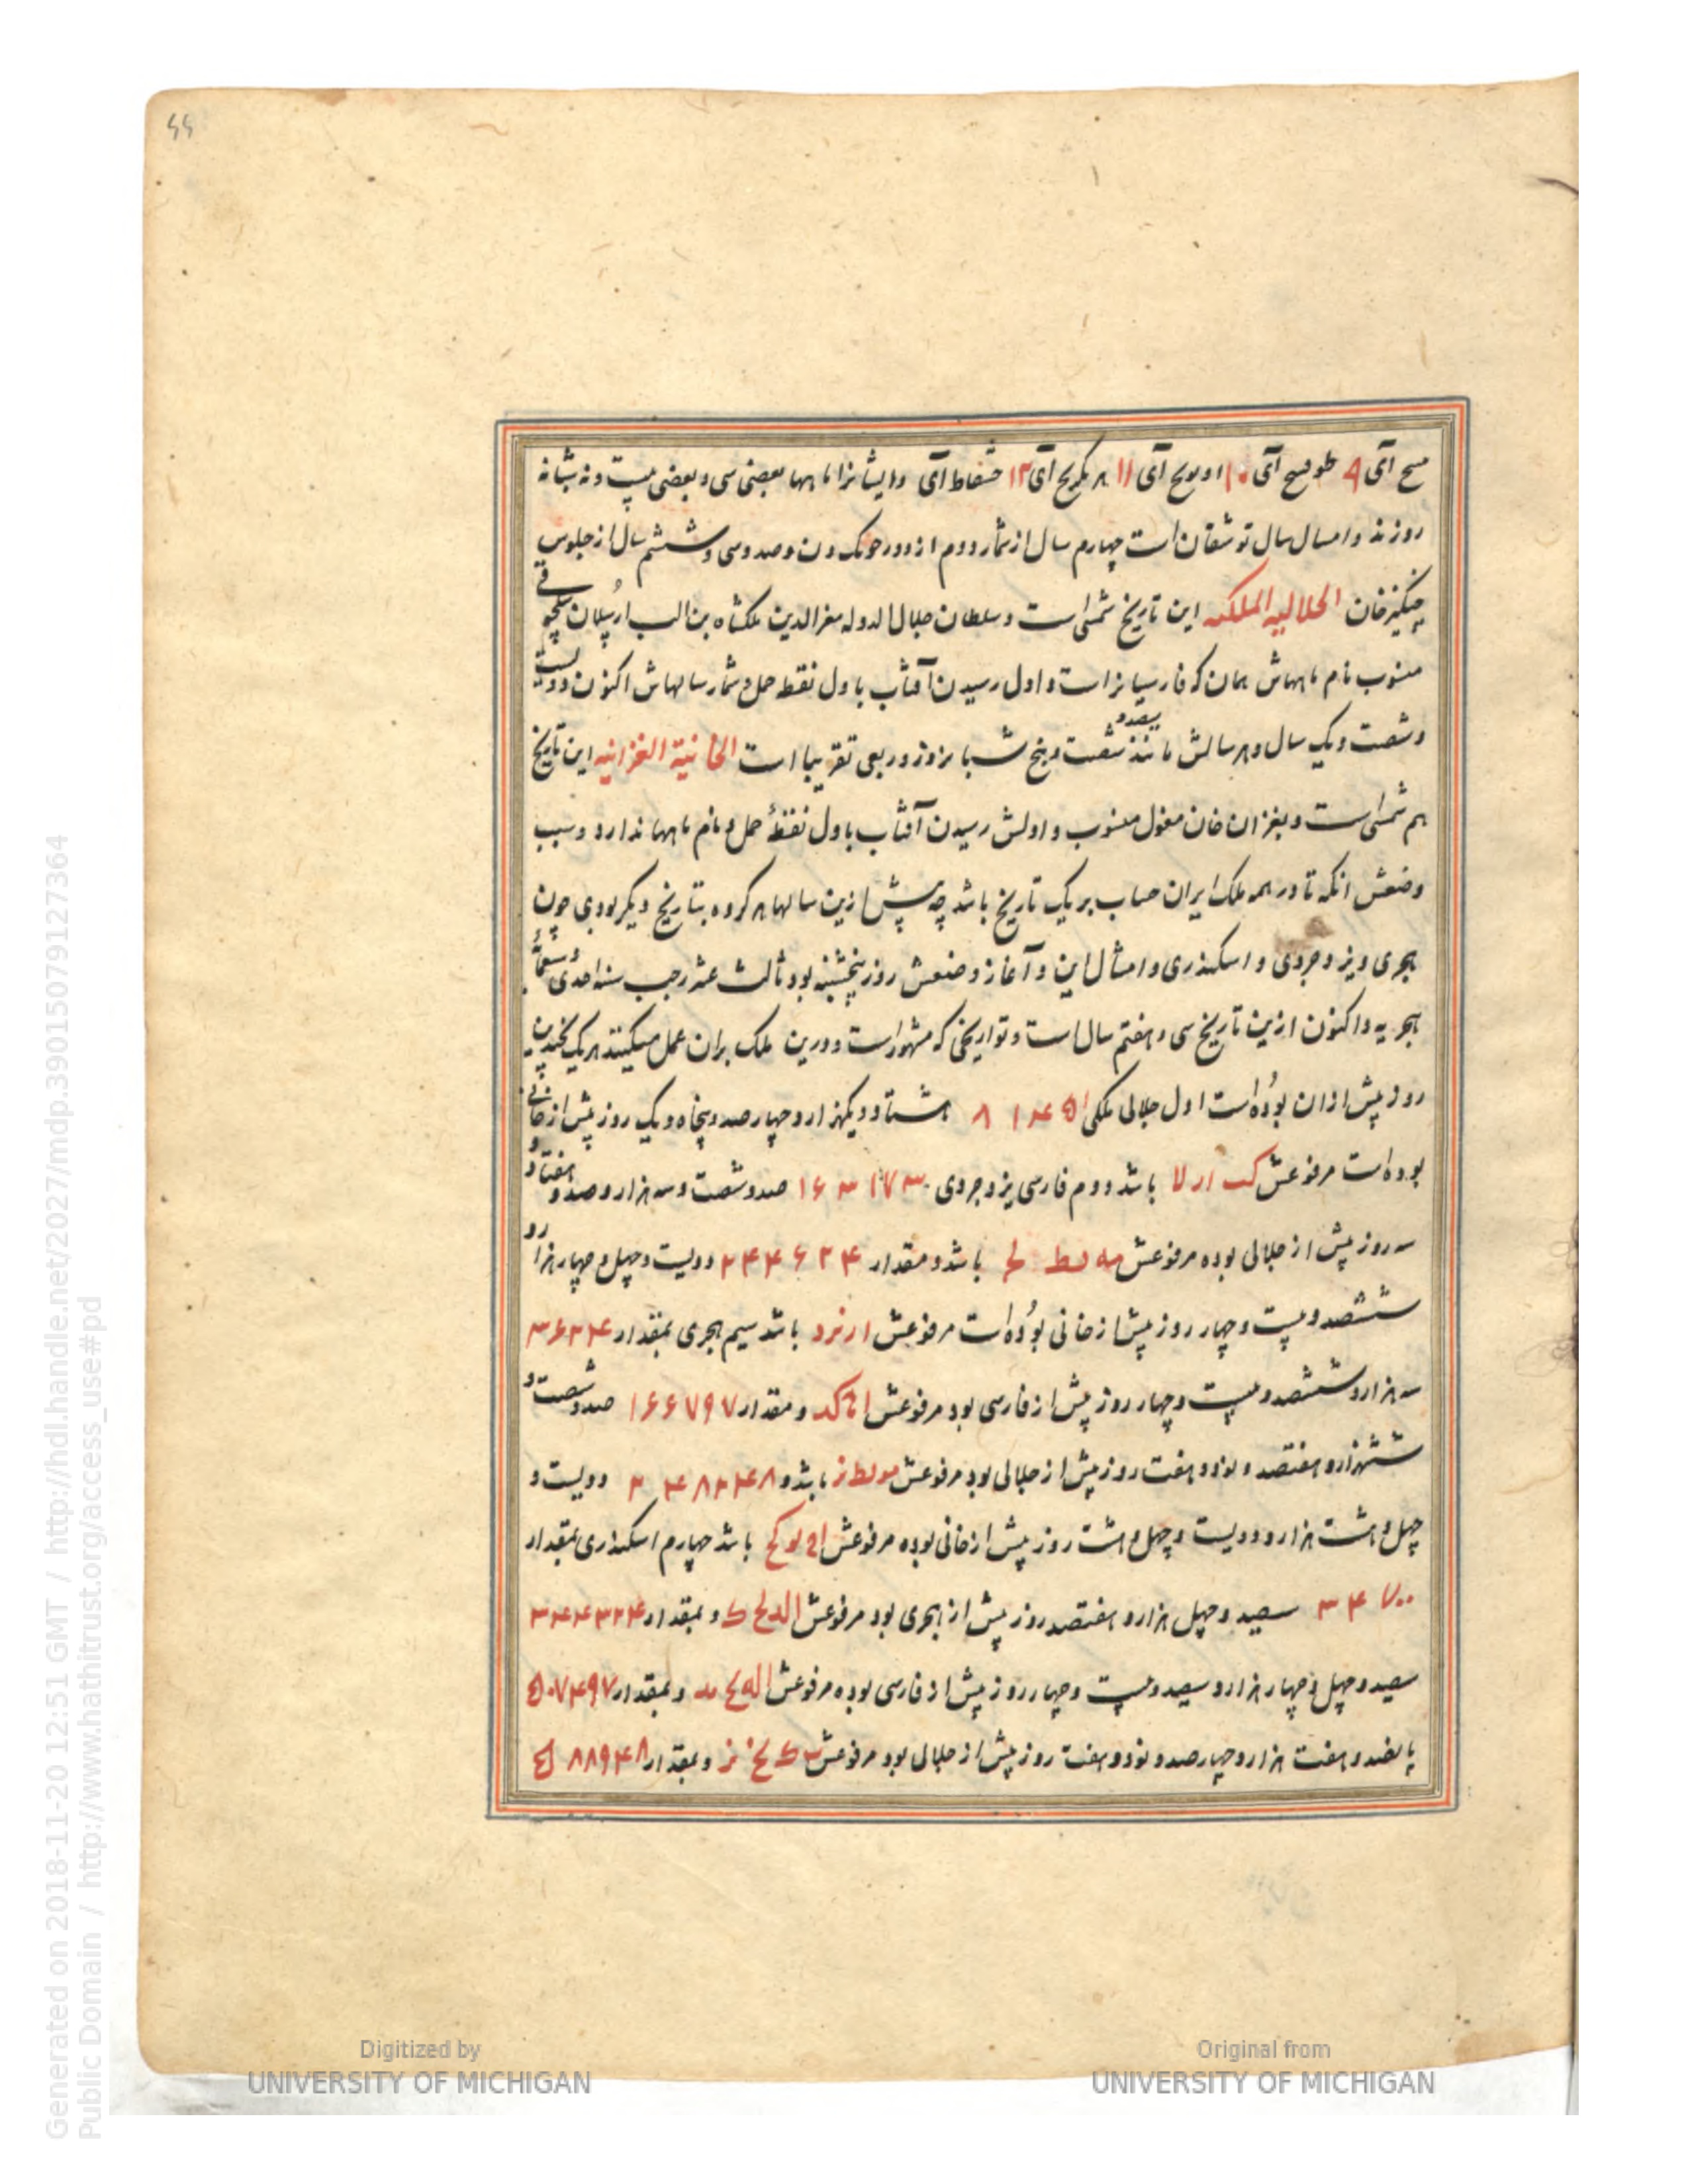 ۶۶
سح آی ۹ طوقسح آی ۱۰ اویونج آی ۱۱ ۸ بکرمح آی ۱۲ حقشاط آی وایشانرا ماهها بعضی سی و بعضی بیست و نه شبانه
روزند و امسال سال توشقان است چهارم سال از شمار دوم از دور خونک ون و صد و سی و ششم سال از جلوس
چنکیزخان الجلالیه الملکیه این تاریخ شمسی است و سلطان جلال الدوله معزالدین ملکشاه بن الب ارسلان سلجوقی
منسوب نام ماههاش همان که فارسیانراست و اول رسیدن آفتاب باول نقطه حمل و شمار سالهاش اکنون دویست
و شصت و یک سال و هر سالش مانند سیصد و شصت و پنج شبانروز و ربعی تقریبا است الخانیة الغزانیه این تاریخ
هم شمسی است و بغزان خان مغول منسوب و اولش رسیدن آفتاب باول نقطهٔ حمل و نام ماهها ندارد و سبب
وضعش انکه تا در همه ملک ایران حساب بر یک تاریخ باشد چه پیش ازین سالها هر کروه بتاریخ دیکر بودی چون
هجری و یزدجردی و اسکندری و امثال این و آغاز وضعش روز پنجشنبه بود ثالث عشر رجب سنه احدی و سبعمائة
هجریه و اکنون ازین تاریخ سی و هفتم سال است و تواریخی که مشهوراست و درین ملک بران عمل میکنند هر یک بچندین
روز پیش ازان بوده است اول جلالی ملکی ۸۱۴۵۱ هشتاد و یکهزار و چهارصد و پنجاه و یک روز پیش از خانی
بوده است مرفوعش کب ار لا باشد دوم فارسی یزدجردی ۱۶۳۱۷۳ صد و شصت و سه هزار و صد و هفتاد و
سه روز پیش از جلالی بوده مرفوعش مه یط لح باشد و مقدار ۲۴۴۶۲۴ دویست و چهل و چهار هزار و
ششصد و بیست و چهار روز پیش از خانی بوده است مرفوعش ا ز نر د باشد سیم هجری بمقدار ۳۶۲۴
سه هزار و ششصد و بیست و چهار روز پیش از فارسی بود مرفوعش ا ۰ کد و مقدار ۱۶۶۷۹۷ صد و شصت و
ششهزار و هفتصد و نود و هفت روز پیش از جلالی بود مرفوعش مو یط نر باشد و ۲۴۸۲۴۸ دویست و
چهل و هشت هزار و دویست و چهل و هشت روز پیش از خانی بوده مرفوعش ا ح نو کح باشد چهارم اسکندری بمقدار
۳۴۰۷۰۰ سیصد و چهل هزار و هفتصد روز پیش از هجری بود مرفوعش ا لد لح ک و بمقدار ۳۴۴۳۲۴
سیصد و چهل و چهار هزار و سیصد و بیست و چهار روز پیش از فارسی بوده مرفوعش ا له لح مد و بمقدار ۵۰۷۴۹۷
پانصد و هفت هزار و چهارصد و نود و هفت روز پیش از جلالی بود مرفوعش ب ک نح نر و بمقدار ۵۸۸۹۴۸
Generated on 2018-11-20 12:51 GMT / http://hdl.handle.net/2027/mdp.39015079127364
Public Domain / http://www.hathitrust.org/access_use#pd
Digitized by
UNIVERSITY OF MICHIGAN
Original from
UNIVERSITY OF MICHIGAN